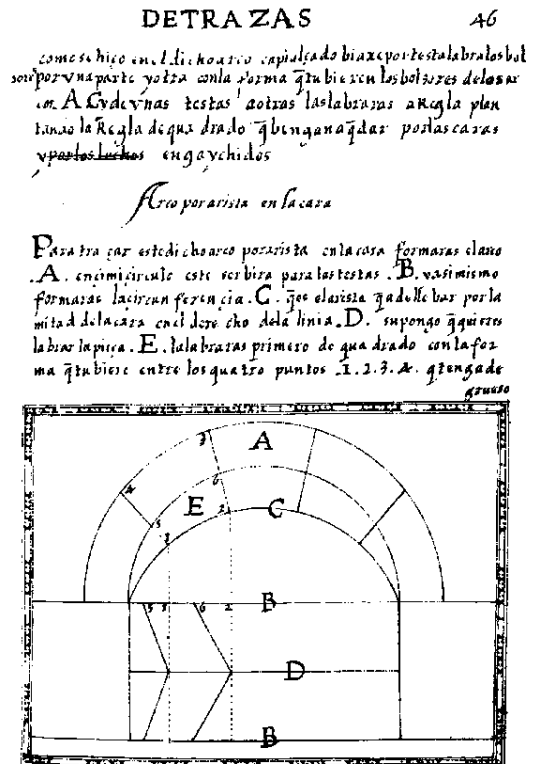 DE TRAZAS 46
como se hiço en el dicho arco capialçado biaxe por testa labra los bol
sores por vna parte y otra con la forma q̃ tubieren los bolsores de los ar
cos A C y de vnas testas a otras las labraras a Regla plan
tando la Regla de quadrado q̃ bengan a q̃dar por las caras
y por los lechos engaychidos
Arco por arista en la cara
Para traçar este dicho arco por arista en la cara formaras el arco
.A. en cimicirculo este serbira para las testas .B. y asimismo
formaras la circunferencia .C. q̃ es el arista q̃ a de llebar por la
mitad de la cara en el derecho de la linia .D. supongo q̃ quieres
labrar la pieça .E. la labraras primero de quadrado con la for
ma q̃ tubiere entre los quatro puntos .1.2.3.4. q̃ tenga de
grueso
A
3
4
6
E
2
C
5
1
B
5 1 6 2
D
B